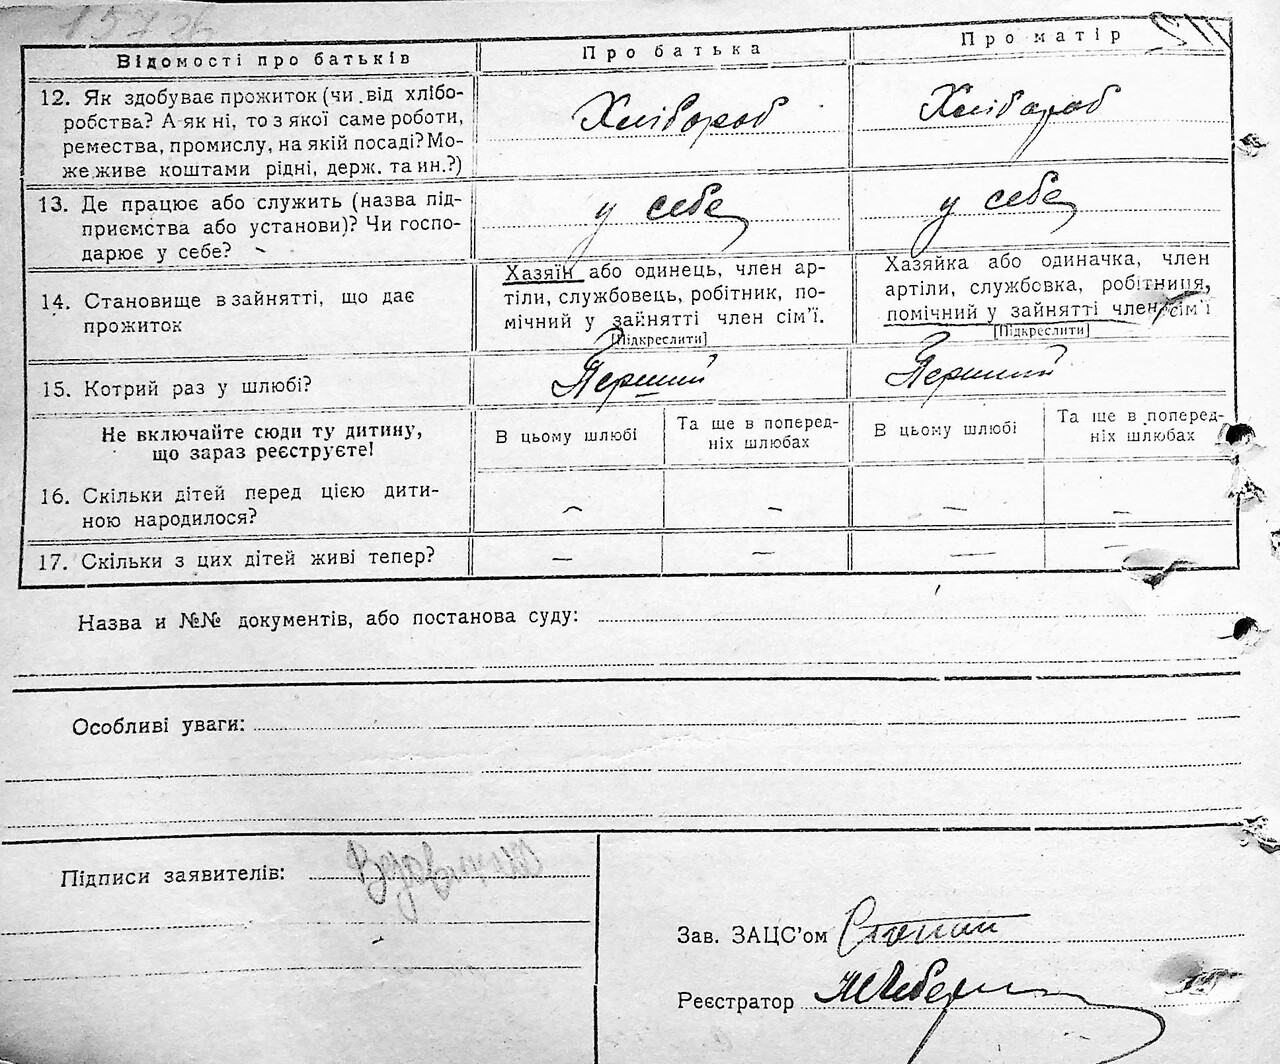 15726
Відомості про батьків
Про батька
Про матір
12. Як здобуває прожиток (чи від хлібо-
робства? А як ні, то з якої саме роботи,
ремества, промислу, на якій посаді? Мо-
же живе коштами рідні, держ. та ин.?)
Хлібороб
Хлібороб
13. Де працює або служить (назва під-
приємства або установи)? Чи госпо-
дарює у себе?
у себе
у себе
14. Становище в зайнятті, що дає
прожиток
Хазяїн або одинець, член ар-
тіли, службовець, робітник, по-
мічний у зайнятті член сім'ї.
[Підкреслити]
Хазяйка або одиначка, член
артіли, службовка, робітниця,
помічний у зайнятті член сім'ї
[Підкреслити]
15. Котрий раз у шлюбі?
Перший
Перший
Не включайте сюди ту дитину,
що зараз реєструєте!
В цьому шлюбі
Та ще в поперед-
ніх шлюбах
В цьому шлюбі
Та ще в поперед-
ніх шлюбах
16. Скільки дітей перед цією дити-
ною народилося?
—
—
—
—
17. Скільки з цих дітей живі тепер?
—
—
—
—
Назва и №№ документів, або постанова суду:
Особливі уваги:
Підписи заявителів:
Зав. ЗАЦС'ом
Реєстратор